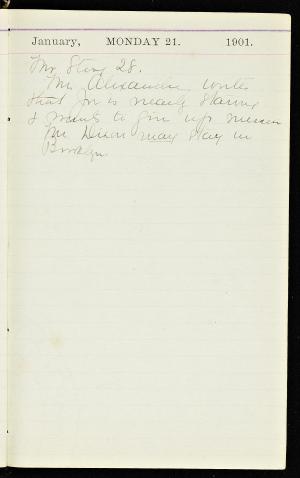 January, MONDAY 21. 1901.
Mr 28.
Mr. Alexander writes
that Jos is nearly starving
& wants to give up mission
Mr Dixon may stay in
Brooklyn